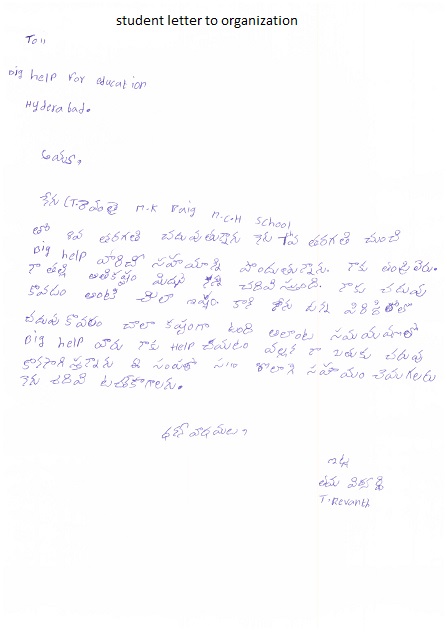 student letter to organization
To,,
Big help for education
Hyderabad.
అయ్యా,
నేను (T.రేవంత్) M.K Baig M.C.H School
లో 8వ తరగతి చదువుతున్నాను నేను 7వ తరగతి నుంచి
Big help వారిచే సహాయాన్ని పొందుతున్నాను. నాకు తండ్రి లేరు.
నా తల్లి అతికష్టం మీద నన్ను చదివిస్తుంది. నాకు చదువు
కోవడం అంటే చాలా ఇష్టం. కాని నేను ఉన్న పరిస్థితిలో
చదువుకోవడం చాలా కష్టంగా ఉంది అలాంటి సమయములో
Big help వారు నాకు Help చేయటం వల్లన నా చదువు
కొనసాగిస్తున్నాను ఈ సంవత్సరం కూడా సహాయం చేయగలరు
నేను
ధన్యవాదములు,
ఇట్లు
తమ విద్యార్థి
T.Revanth